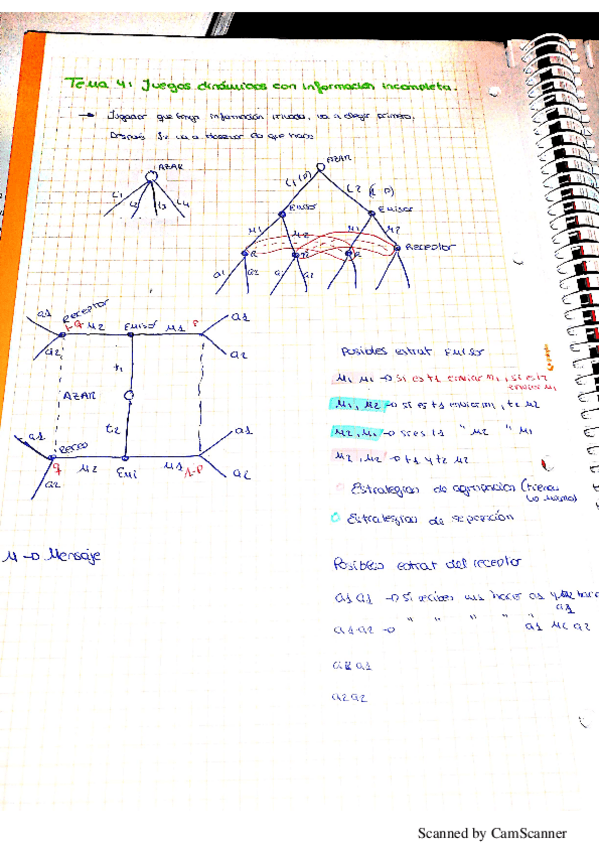 Tema 4: Juegos dinámicos con información incompleta.
→ Jugador que tenga información privada, va a elegir primero.
Después J2 va a observar lo que hace
AZAR
L1 L2 L3 L4
AZAR
L1 (P) L2
Emisor Emisor
M1 M2 M1 M2
R R R Receptor
a1 a2 a1 a2
a1 Receptor 1-q M2 Emisor M1 P a1
a2 a2
t1
AZAR
t2
a1 Recep a1
q M2 Emi M1 1-P
a2 a2
M → Mensaje
Posibles estrat Emisor
M1 M1 → Si es t1 enviar M1, si es t2 enviar M1
M1, M2 → si es t1 enviar M1, t2 M2
M2, M1 → si es t1 " M2 " M1
M2, M2 → t1 y t2 M2
Estrategias de agrupación (tienen lo mismo)
Estrategias de separación
Posibles estrat del receptor
a1 a1 → Si recibes M1 hace a1 y M2 hace a1
a1 a2 → " " " " a1 M2 a2
a2 a1
a2 a2
Scanned by CamScanner